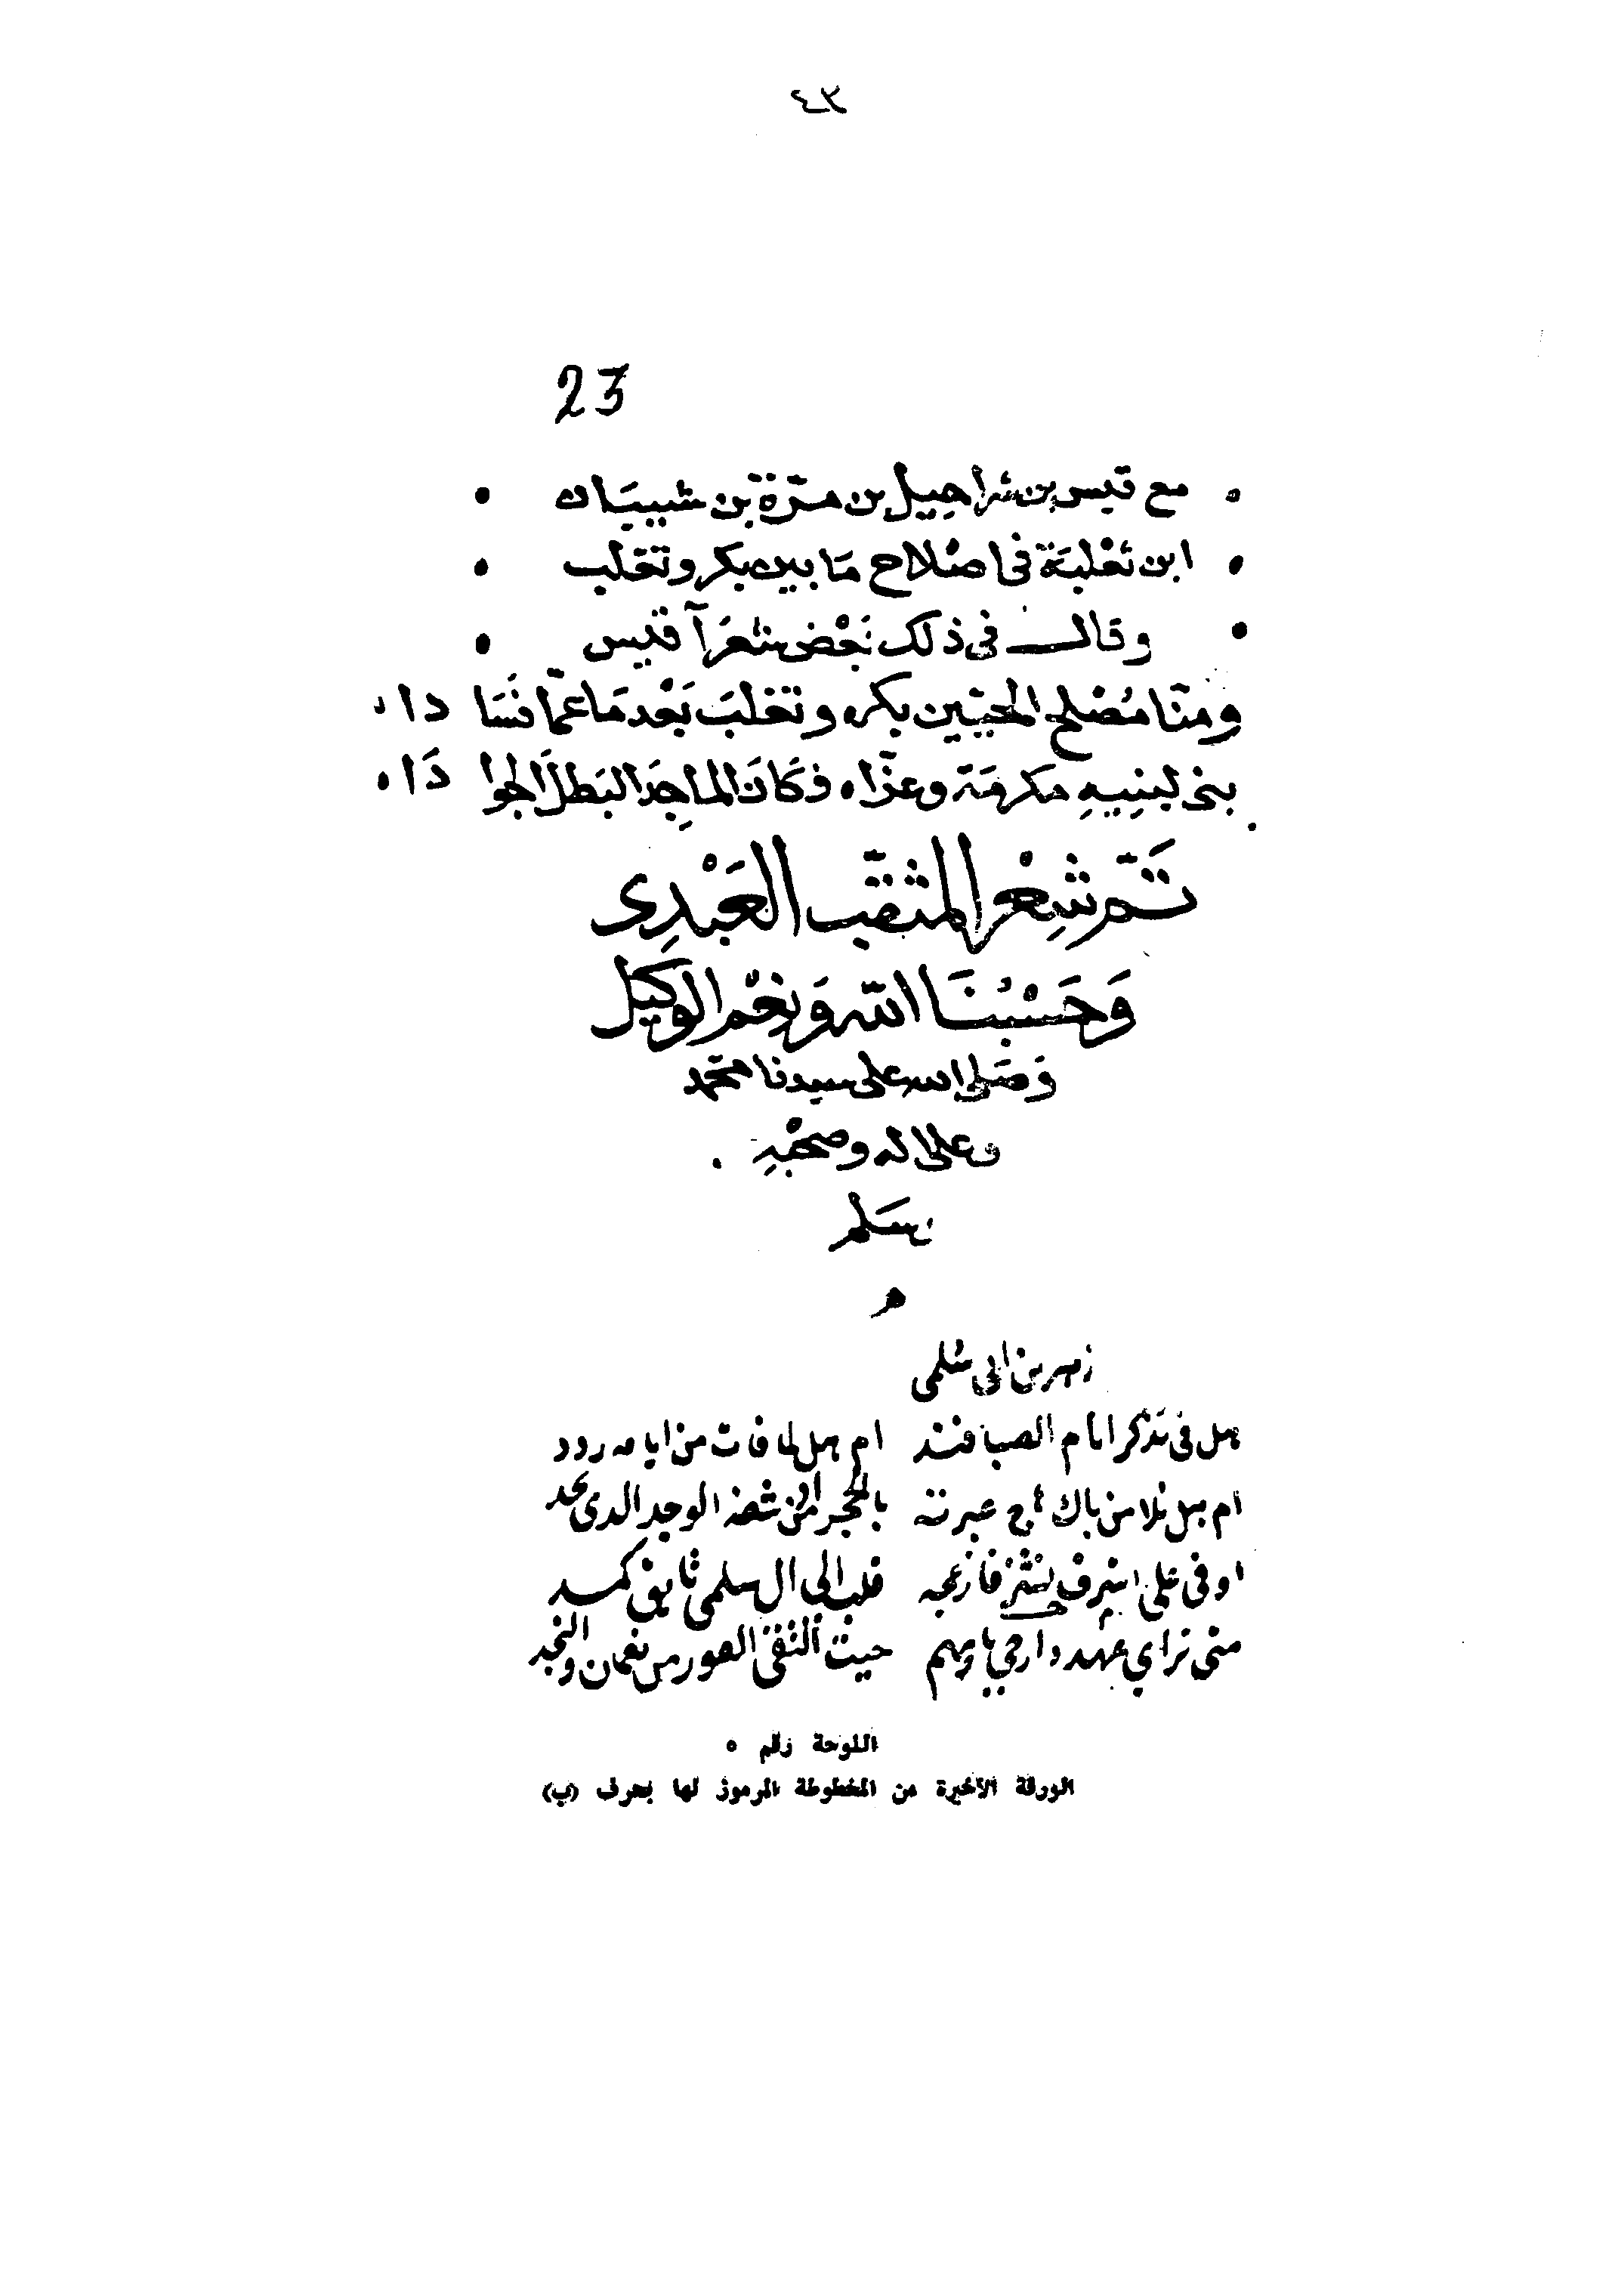 ٤٣
23
مع قيس بن شراحيل بن مرّة بن شيبان
ابن ثعلبة في اصْلاح مَا بين بكر وتغلب
وقال في ذلك بَعْض شعَرآ قيس
ومنّا مُصْلح الحيّين بكر ه وتغلبَ بَعْد مَا عمّا فسَا دا ه
بنى لبنيهِ مكرمَة وعزّا ه فكَانَ الماجِدَ البَطلَ الجوا دَا ه
تَمّ شِعْر المثقّب العَبْدِى
وَحَسْبُنَا الله وَنِعْم الوكيل
وَصَلى الله على سيدنا محمّد
وعلى اله وصحْبهِ
وسَلم
م
زهير بن ابى سُلمى
هل فى تذكر ايام الصبا فند ام هل لما فات من ايامه ردد
ام هل باك عبرته بالحجر اذ شفه الوجد الذى يجد
اوفى على شرف نشز فازعجه قلب الى ال سلمى تايق كمد
متى ترى دار حي عهدهم حيث التقى الغور من نعمان والنجد
اللوحة رقم ٥
الورقة الأخيرة من المخطوطة المرموز لها بحرف (ب)